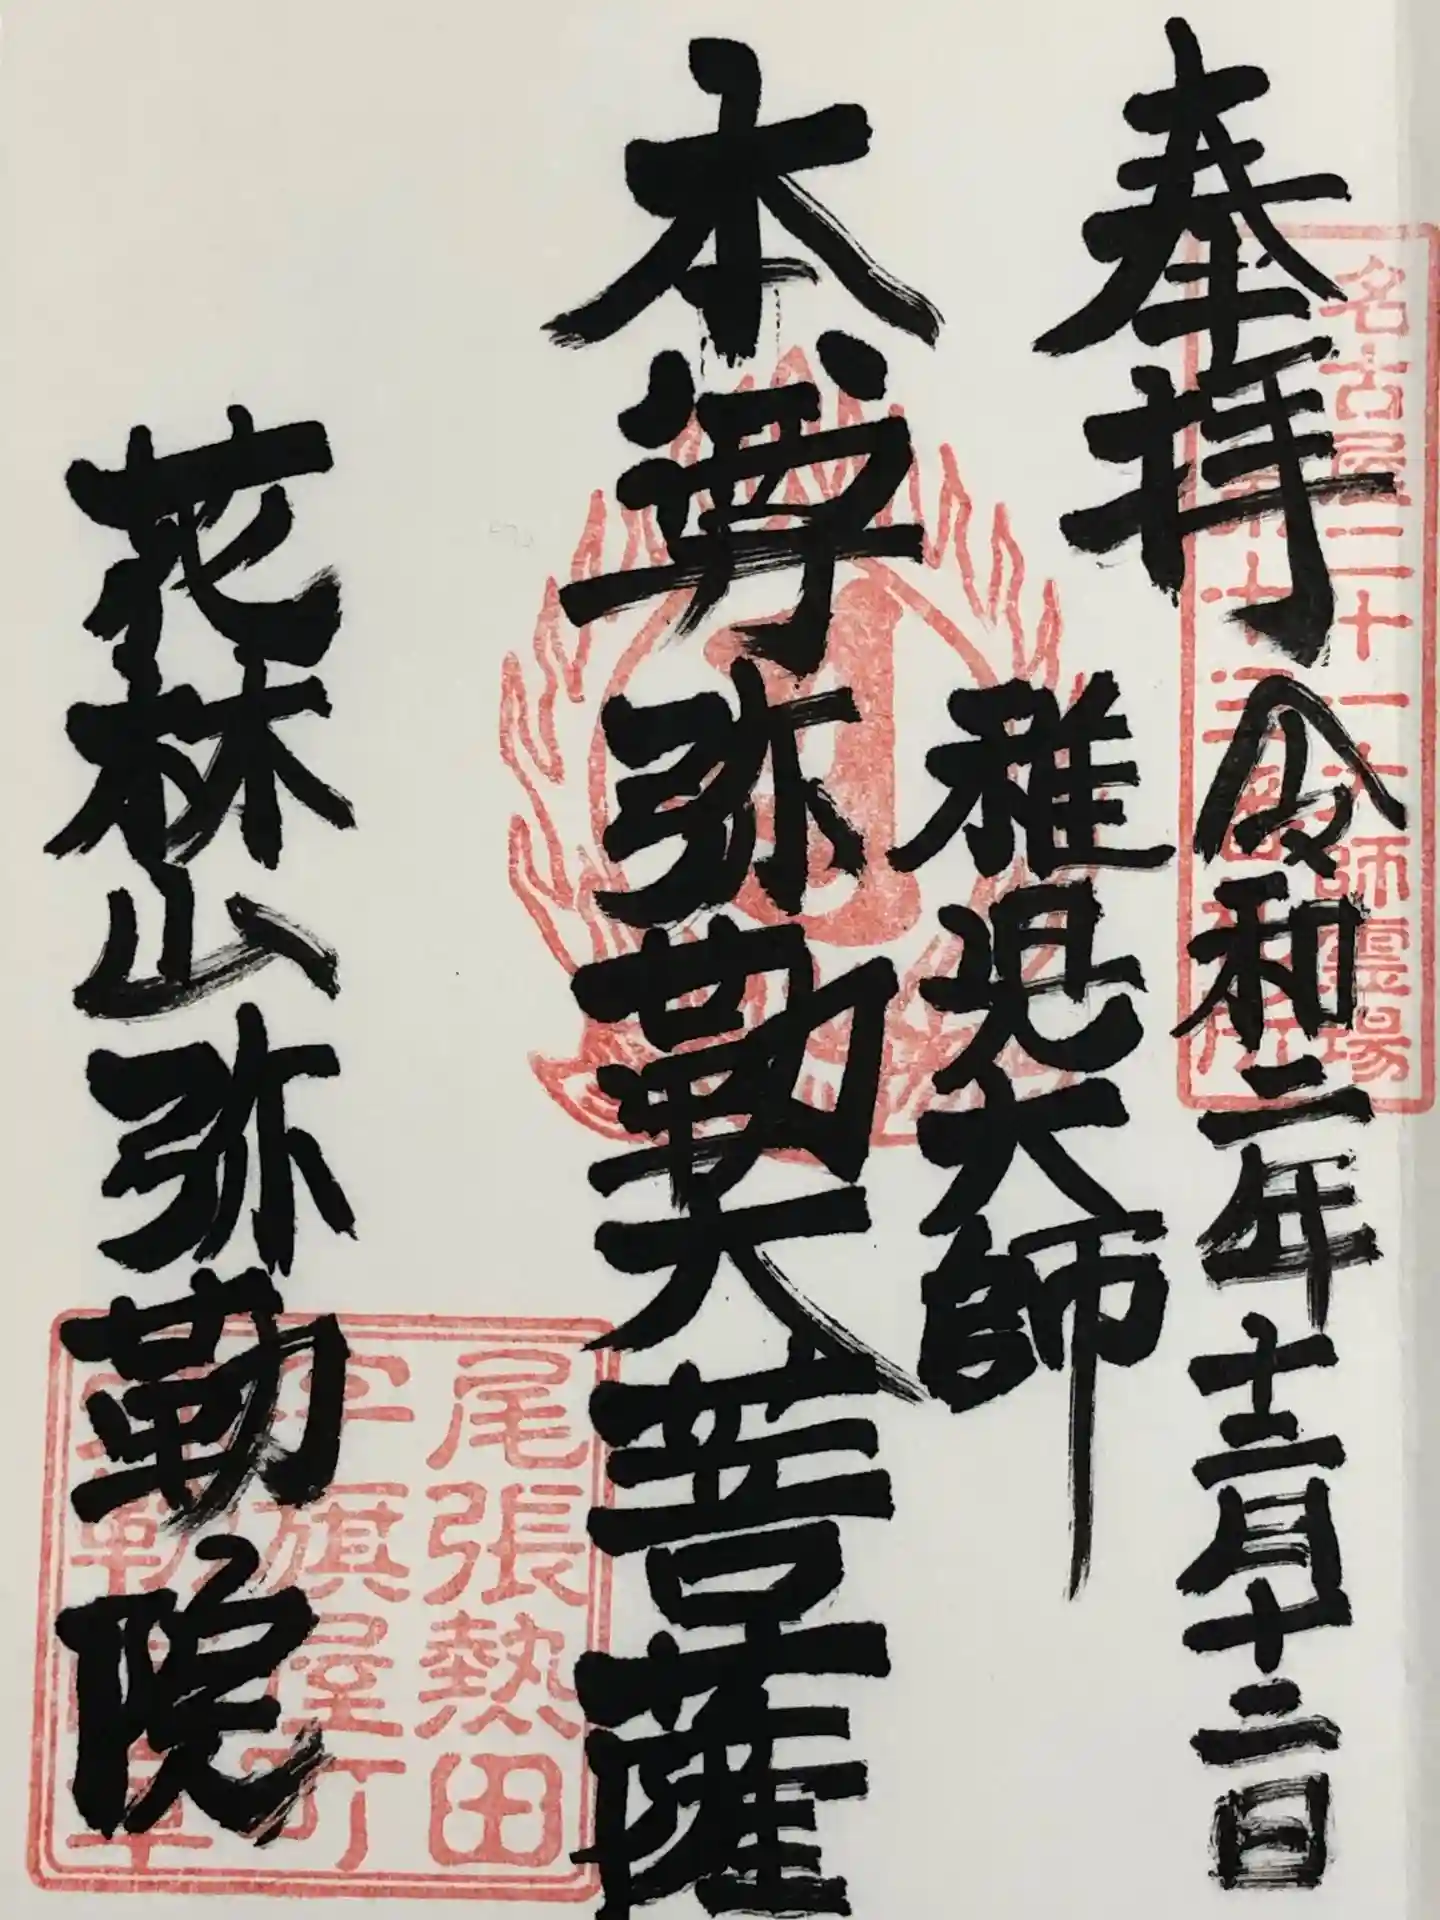 奉拝 令和二年十二月十二日
名古屋二十一大師霊場
第十三番札所
稚児大師
本尊 弥勒大菩薩
花林山弥勒院
尾張熱田
字旗屋町